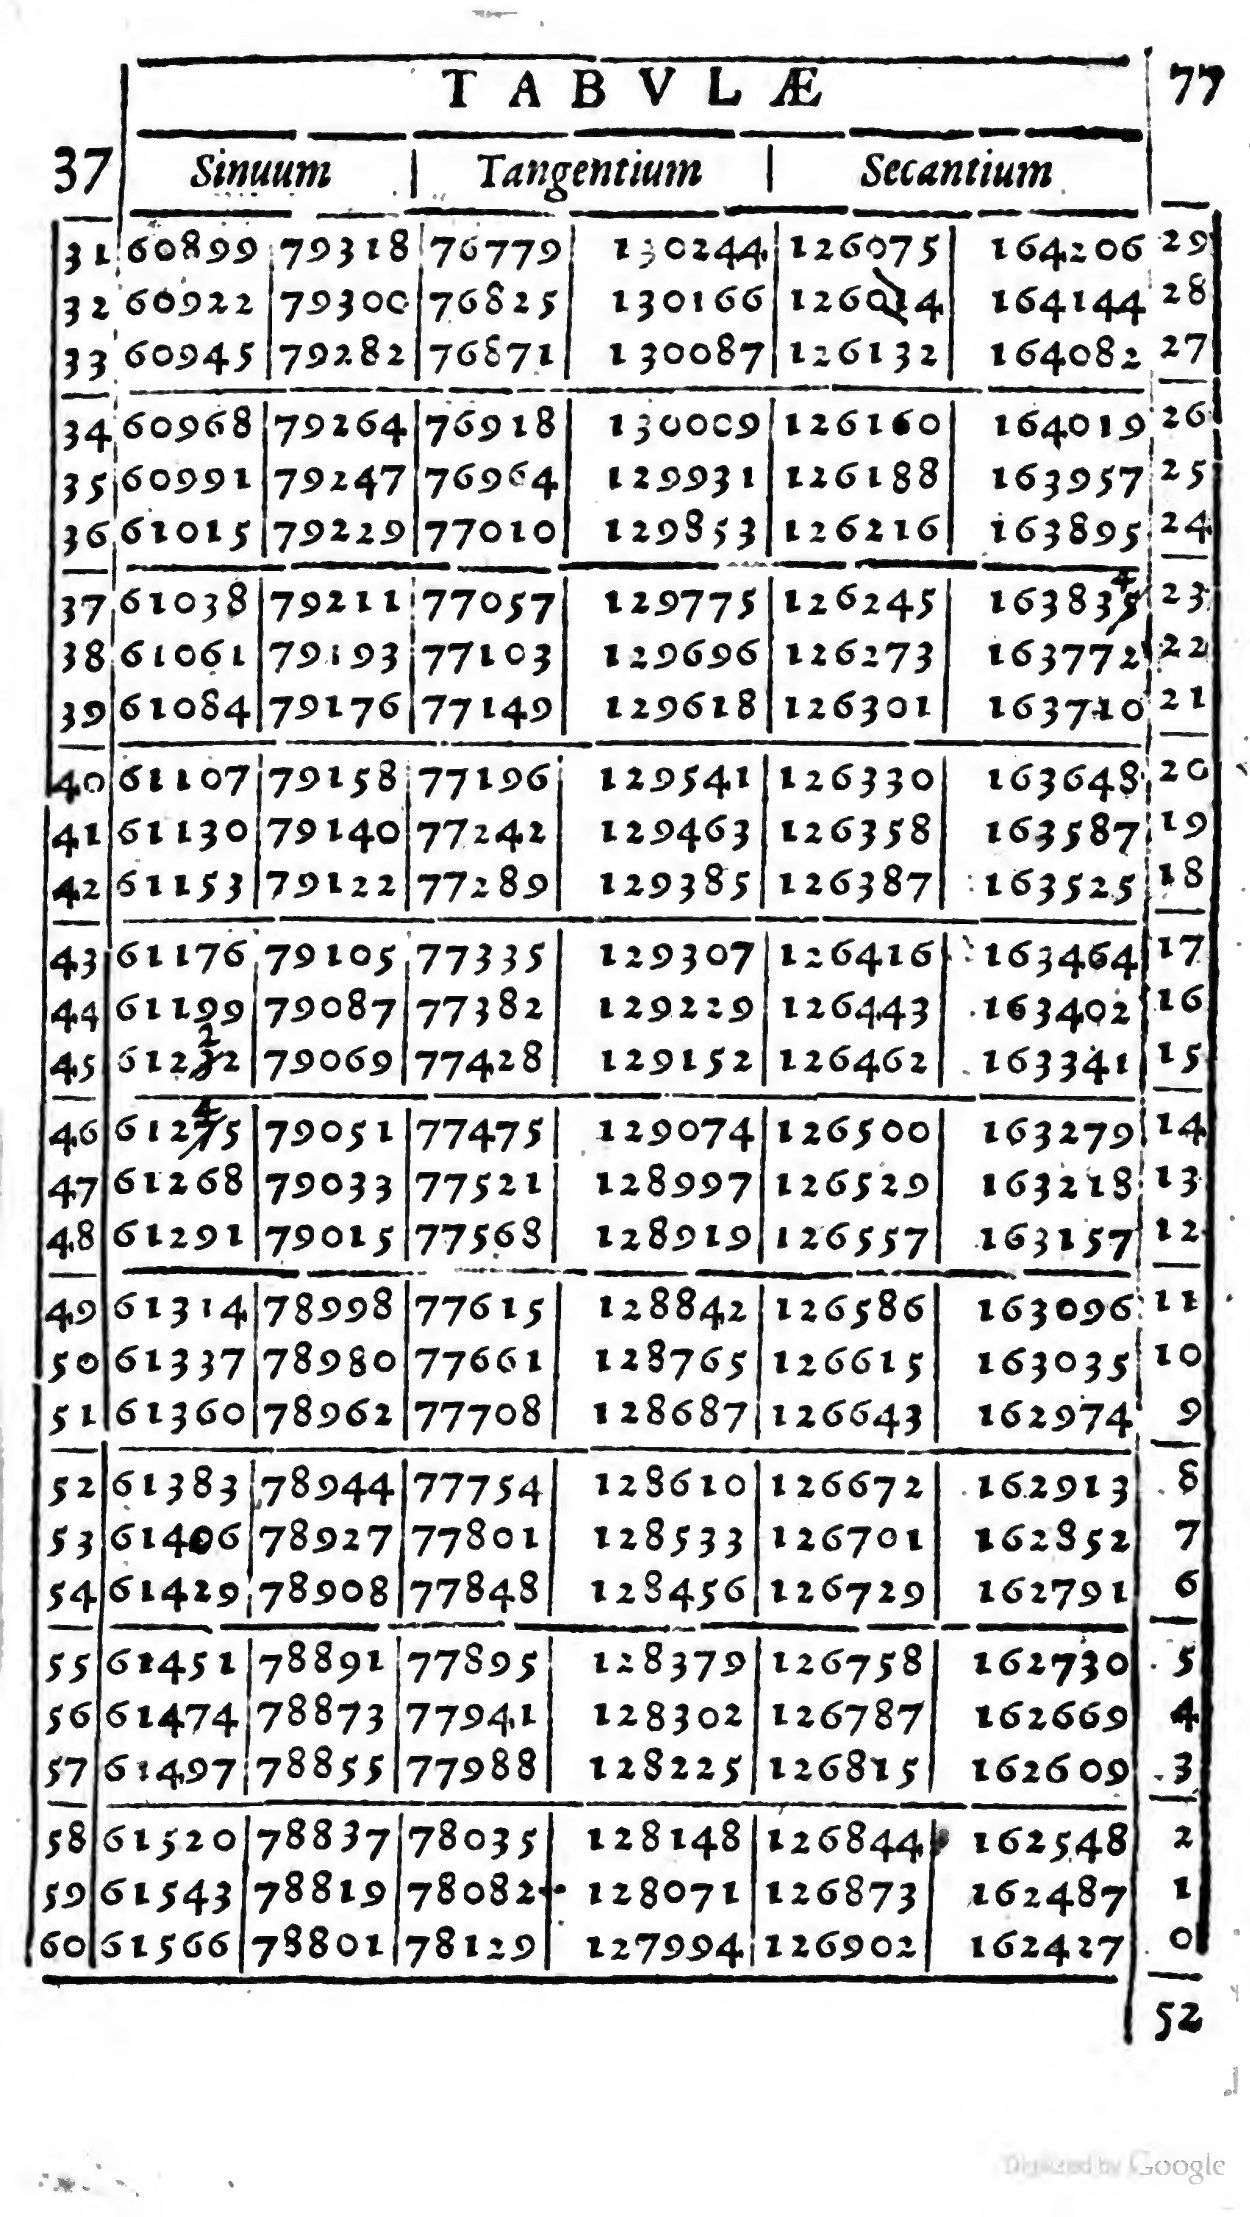 TABVLÆ 77
37 Sinuum Tangentium Secantium
31 60899 79318 76779 130244 126075 164206 29
32 60922 79300 76825 130166 126014 164144 28
33 60945 79282 76871 130087 126132 164082 27
34 60968 79264 76918 130009 126160 164019 26
35 60991 79247 76964 129931 126188 163957 25
36 61015 79229 77010 129853 126216 163895 24
37 61038 79211 77057 129775 126245 163835 4 23
38 61061 79193 77103 129696 126273 163772 22
39 61084 79176 77149 129618 126301 163710 21
40 61107 79158 77196 129541 126330 163648 20
41 61130 79140 77242 129463 126358 163587 19
42 61153 79122 77289 129385 126387 163525 18
43 61176 79105 77335 129307 126416 163464 17
44 61199 79087 77382 129229 126443 163402 16
45 61232 2 79069 77428 129152 126462 163341 15
46 61275 4 79051 77475 129074 126500 163279 14
47 61268 79033 77521 128997 126529 163218 13
48 61291 79015 77568 128919 126557 163157 12
49 61314 78998 77615 128842 126586 163096 11
50 61337 78980 77661 128765 126615 163035 10
51 61360 78962 77708 128687 126643 162974 9
52 61383 78944 77754 128610 126672 162913 8
53 61406 78927 77801 128533 126701 162852 7
54 61429 78908 77848 128456 126729 162791 6
55 61451 78891 77895 128379 126758 162730 5
56 61474 78873 77941 128302 126787 162669 4
57 61497 78855 77988 128225 126815 162609 3
58 61520 78837 78035 128148 126844 162548 2
59 61543 78819 78082 128071 126873 162487 1
60 61566 78801 78129 127994 126902 162427 0
52
Digitized by Google